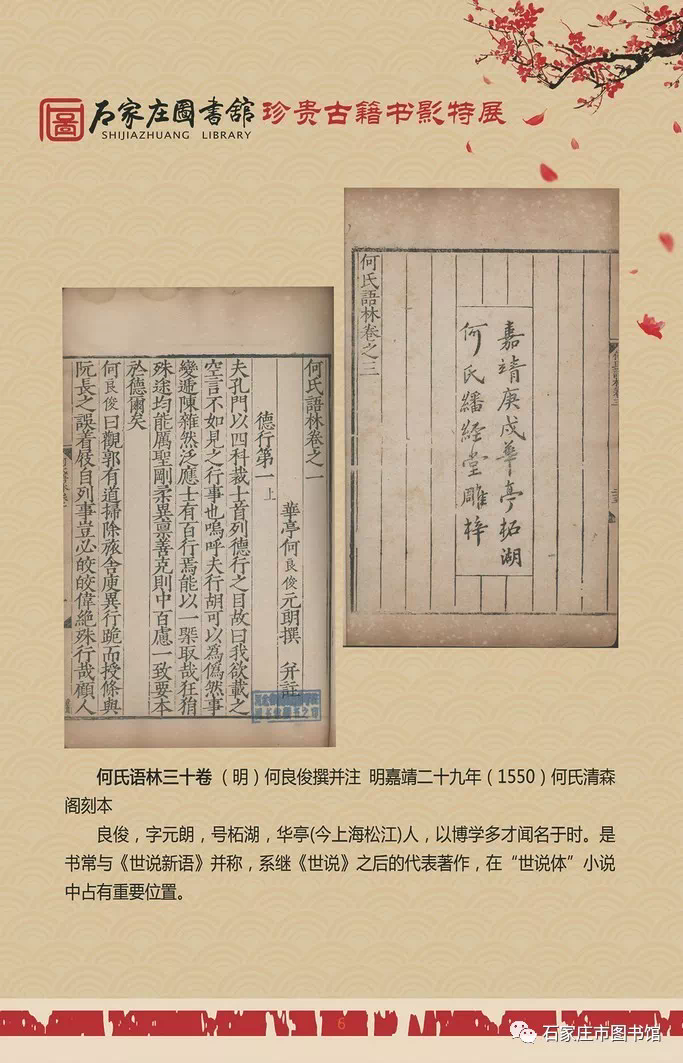 石家庄圖書館 珍贵古籍书影特展
SHIJIAZHUANG LIBRARY
何氏語林卷之三
嘉靖庚戌華亭柘湖
何氏繙經堂雕梓
何氏語林卷之一
華亭何良俊元朗撰 并註
德行第一上
夫孔門以四科裁士首列德行之目故曰我欲載之
空言不如見之行事也嗚呼夫行胡可以為偽然事
變遞陳雜然泛應士有百行焉能以一槩取哉狂狷
殊途均能厲聖剛柔異稟善克則中百慮一致要本
於德爾矣
何良俊曰觀郭有道掃除旅舍庾異行跪而授條與
阮長之誤着屐自列事豈必皎皎偉絶殊行哉顧人
何氏语林三十卷（明）何良俊撰并注 明嘉靖二十九年（1550）何氏清森
阁刻本
良俊，字元朗，号柘湖，华亭(今上海松江)人，以博学多才闻名于时。是
书常与《世说新语》并称，系继《世说》之后的代表著作，在“世说体”小说
中占有重要位置。
6
石家庄市图书馆